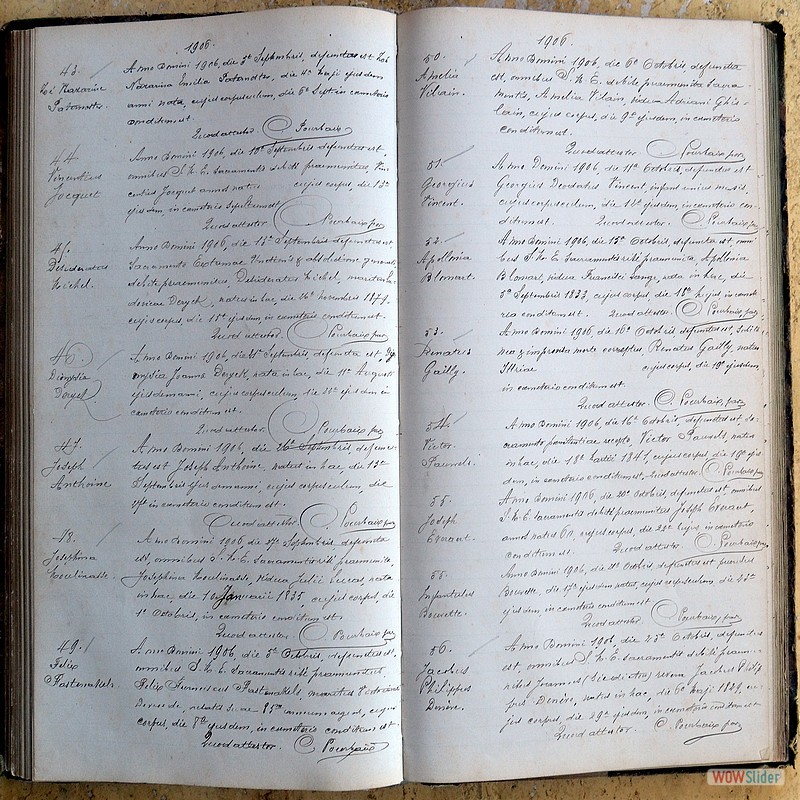 1906.
43.
Zoé Nazarine
Paternoster.
Anno Domini 1906, die 5ª Septembris, defunctus est Zoé
Nazarina Emilia Paternoster, die 4ª Maji ejusdem
anni nata, cujus corpusculum, die 6ª Septis in cœmeterio
conditum est.
Quod attestor. Pourbaix
44
Vincentius
Jocquet
Anno Domini 1906, die 10ª Septembris defunctus est,
omnibus S. M. E. Sacramentis debite praemunitus, Vin
centius Jocquet annos natus cujus corpus, die 13ª
ejusdem, in cœmeterio sepultum est
Quod attestor Pourbaix par
45.
Desideratus
Michel.
Anno Domini 1906, die 13ª Septembris defunctus est,
Sacramento Extremae Unctionis & absolutione generali
debite praemunitus, Desideratus Michel, maritus Lu
dovicae Deryck, natus in hac, die 26ª Novembris 1879,
cujus corpus, die 15ª ejusdem in cœmeterio conditum est.
Quod attestor. Pourbaix par
46.
Dionysia
Deryck
Anno Domini 1906, die 18ª Septembris defuncta est, Dio
nysia Joanna Deryck, nata in hac, die 11ª Augusti
ejusdem anni, cujus corpusculum, die 20ª ejusdem in
cœmeterio conditum est.
Quod attestor. Pourbaix par
47.
Joseph
Anthoine
Anno Domini 1906, die 26ª Septembris, defunc
tus est Joseph Anthoine, natus in hac, die 13ª
Septembris ejusdem anni, cujus corpusculum, die
in cœmeterio conditum est.
Quod attestor. Pourbaix par
48.
Josephina
Moulinasse.
Anno Domini 1906 die 27ª Septembris, defuncta
est, omnibus S. M. E. Sacramentis rite praemunita,
Josephina Moulinasse, vidua Julii Lucas, nata
in hac, die 10 Januarii 1835, cujus corpus, die
1ª Octobris, in cœmeterio conditum est.
Quod attestor. Pourbaix par
49.
Felix
Pastenakels.
Anno Domini 1906, die 5ª Octobris, defunctus est,
omnibus S. M. E. Sacramentis rite praemunitus,
Felix Furnesceus Pastenakels, maritus
aetatis suae 85ª annum agens, cujus
corpus, die 8ª ejusdem, in cœmeterio conditum est.
Quod attestor. Pourbaix
1906.
50.
Amelia
Vilain.
Anno Domini 1906, die 6ª Octobris, defuncta
est, omnibus S. M. E. debite praemunita Sacra
mentis, Amelia Vilain, vidua Adriani Ghis-
lain, cujus corpus, die 9ª ejusdem, in cœmeterio
conditum est.
Quod attestor. Pourbaix par
51.
Georgius
Vincent.
Anno Domini 1906, die 11ª Octobris, defunctus est
Georgius Deodatus Vincent, infans unius mensis,
cujus corpusculum, die 12ª ejusdem, in cœmeterio con-
ditum est. Quod attestor. Pourbaix par
52.
Apollonia
Blomart.
Anno Domini 1906, die 15ª Octobris, defuncta est, omni
bus S. M. E. Sacramentis rite praemunita, Apollonia
Blomart, vidua Francisci Lange, nata in hac, die
5ª Septembris 1833, cujus corpus, die 18ª hujus, in cœmete
rio conditum est. Quod attestor. Pourbaix par
53.
Renatus
Gailly.
Anno Domini 1906, die 16ª Octobris, defunctus est, subita
nea & improvisa morte correptus, Renatus Gailly, natus
cujus corpus, die 19ª ejusdem,
in cœmeterio conditum est.
Quod attestor. Pourbaix par
54.
Victor
Pauwels.
Anno Domini 1906, die 16ª Octobris, defunctus est Sa-
cramento poenitentiae recepto, Victor Pauwels, natus
in hac, die 18ª Martii 1847, cujus corpus, die 19ª ejus
dem, in cœmeterio conditum est. Quod attestor Pourbaix par
55.
Joseph
Evrart.
Anno Domini 1906, die 20ª Octobris, defunctus est, omnibus
S. M. E. Sacramentis debite praemunitus Joseph Evrart,
annos natus 60, cujus corpus, die 22ª hujus, in cœmeterio
conditum est. Quod attestor Pourbaix par
55.
Anno Domini 1906, die 21ª Octobris, defunctus est
die 17ª ejusdem natus, cujus corpusculum, die 23ª
ejusdem in cœmeterio conditum est
Quod attestor. Pourbaix, par
56.
Jacobus
Philippus
Denève.
Anno Domini 1906, die 25ª Octobris, defunctus
est omnibus S. M. E. Sacramentis debite praemu-
nitus Jacobus Philip
pus Denève, natus in hac, die 6ª Maji 1829, cu-
jus corpus, die 29ª ejusdem, in cœmeterio conditum est.
Quod attestor. Pourbaix par
WOWSlider